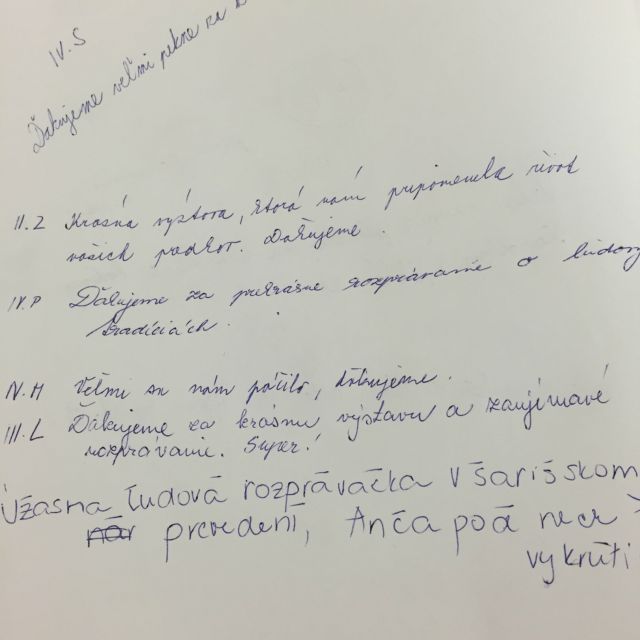 IV.S
Ďakujeme veľmi pekne za
II.Z Krásná výstava, ktorá nám pripomenula život
našich predkov. Ďakujeme.
IV.P Ďakujeme za prekrásne rozprávanie o ľudový
tradíciách.
IV.H Veľmi sa nám páčilo, ďakujeme.
III.L Ďakujeme za krásnu výstavu a zaujímavé
rozprávanie. Super!
Úžasna ľudová rozprávačka v šarišskom
prevedení, Anča poď
vykrúti